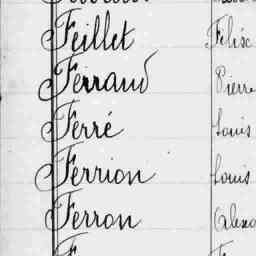 Feillet Félix
Ferrand Pierre
Ferré Louis
Ferrion Louis
Ferron